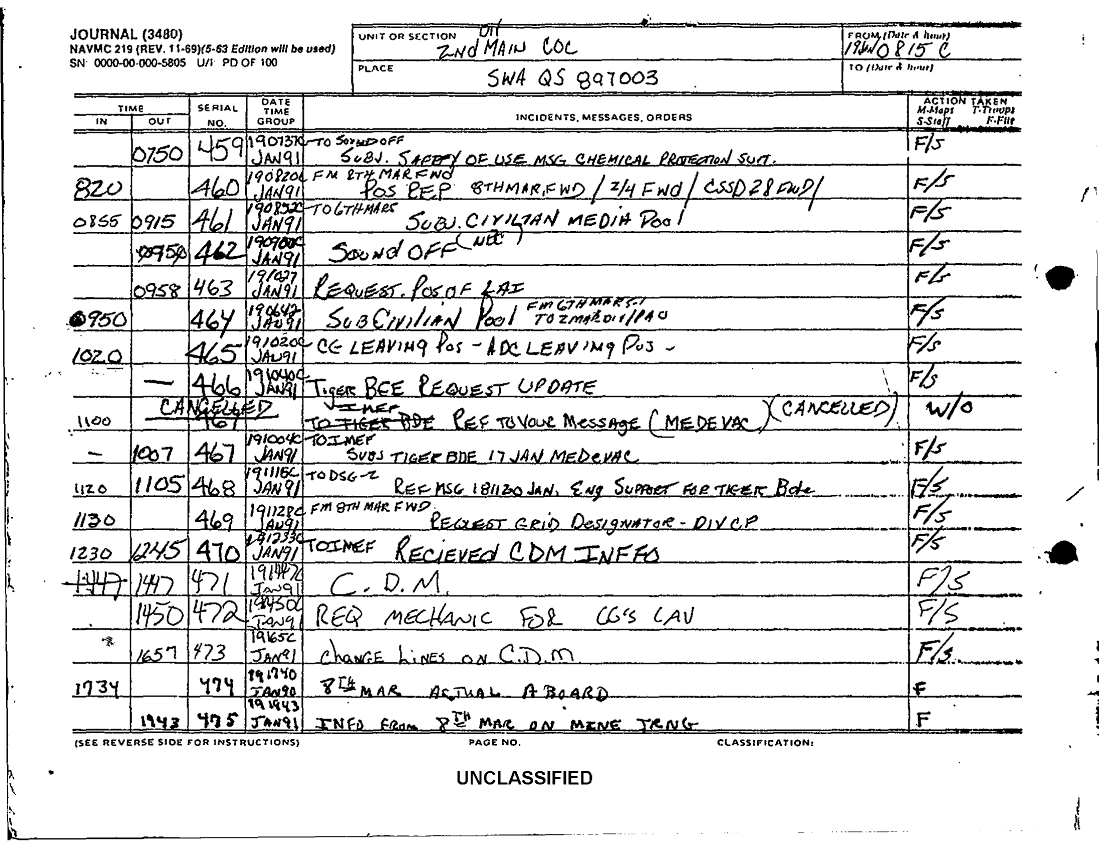 JOURNAL (3480)
NAVMC 219 (REV. 11-69)(5-63 Edition will be used)
SN: 0000-00-000-5805 U/I: PD OF 100
UNIT OR SECTION
2nd MAIN COC
PLACE
SWA QS 897003
FROM (Date & hour)
0815 C
TO (Date & hour)
TIME
IN OUT
SERIAL NO.
DATE TIME GROUP
INCIDENTS, MESSAGES, ORDERS
ACTION TAKEN
M-Maps T-Troops
S-Staff F-File
0750 459 JAN91 TO SOUND OFF F/S
SUBJ. SAFETY OF USE MSG CHEMICAL PROTECTION SUIT.
820 460 190820C JAN91 FM 8TH MAR FWD F/S
POS REP 8TH MAR, FWD / 2/4 FWD / CSSD 28 FWD/
0855 0915 461 JAN91 TO 6TH MARS F/S
SUBJ. CIVILIAN MEDIA POOL
0950 462 JAN91 SOUND OFF F/S
0958 463 191027 JAN91 REQUEST. POS OF LAI F/S
0950 464 190642 JAN91 SUB CIVILIAN POOL FM 6TH MARS. F/S
465 191020C JAN91 CG LEAVING POS - ADC LEAVING POS - F/S
1020
— 466 191040C JAN91 TIGER BDE REQUEST UPDATE F/S
CANCELLED I MEF
1100 467 TO TIGER BDE REF TO YOUR MESSAGE (MEDEVAC) (CANCELLED) W/O
— 1007 467 191004C JAN91 TO I MEF F/S
SUBJ TIGER BDE 17 JAN MEDEVAC
1120 1105 468 191118C JAN91 TO DSG-2 F/S
REF MSG 181120 JAN. ENG SUPPORT FOR TIGER Bde
1130 469 191128C JAN91 FM 8TH MAR FWD F/S
REQUEST GRID DESIGNATOR - DIV CP
1230 1245 470 191233C JAN91 TO I MEF RECIEVED CDM INFFO F/S
1447 1447 471 191447C JAN91 C.D.M. F/S
1450 472 191450C JAN91 REQ MECHANIC FOR CG'S LAV F/S
1657 473 19165C JAN91 Change Lines on C.D.M F/S
1734 474 191740 JAN90 8TH MAR ACTUAL ABOARD F
1943 475 191943 JAN91 INFO FROM 8TH MAR ON MINE TRNG F
(SEE REVERSE SIDE FOR INSTRUCTIONS) PAGE NO. CLASSIFICATION:
UNCLASSIFIED